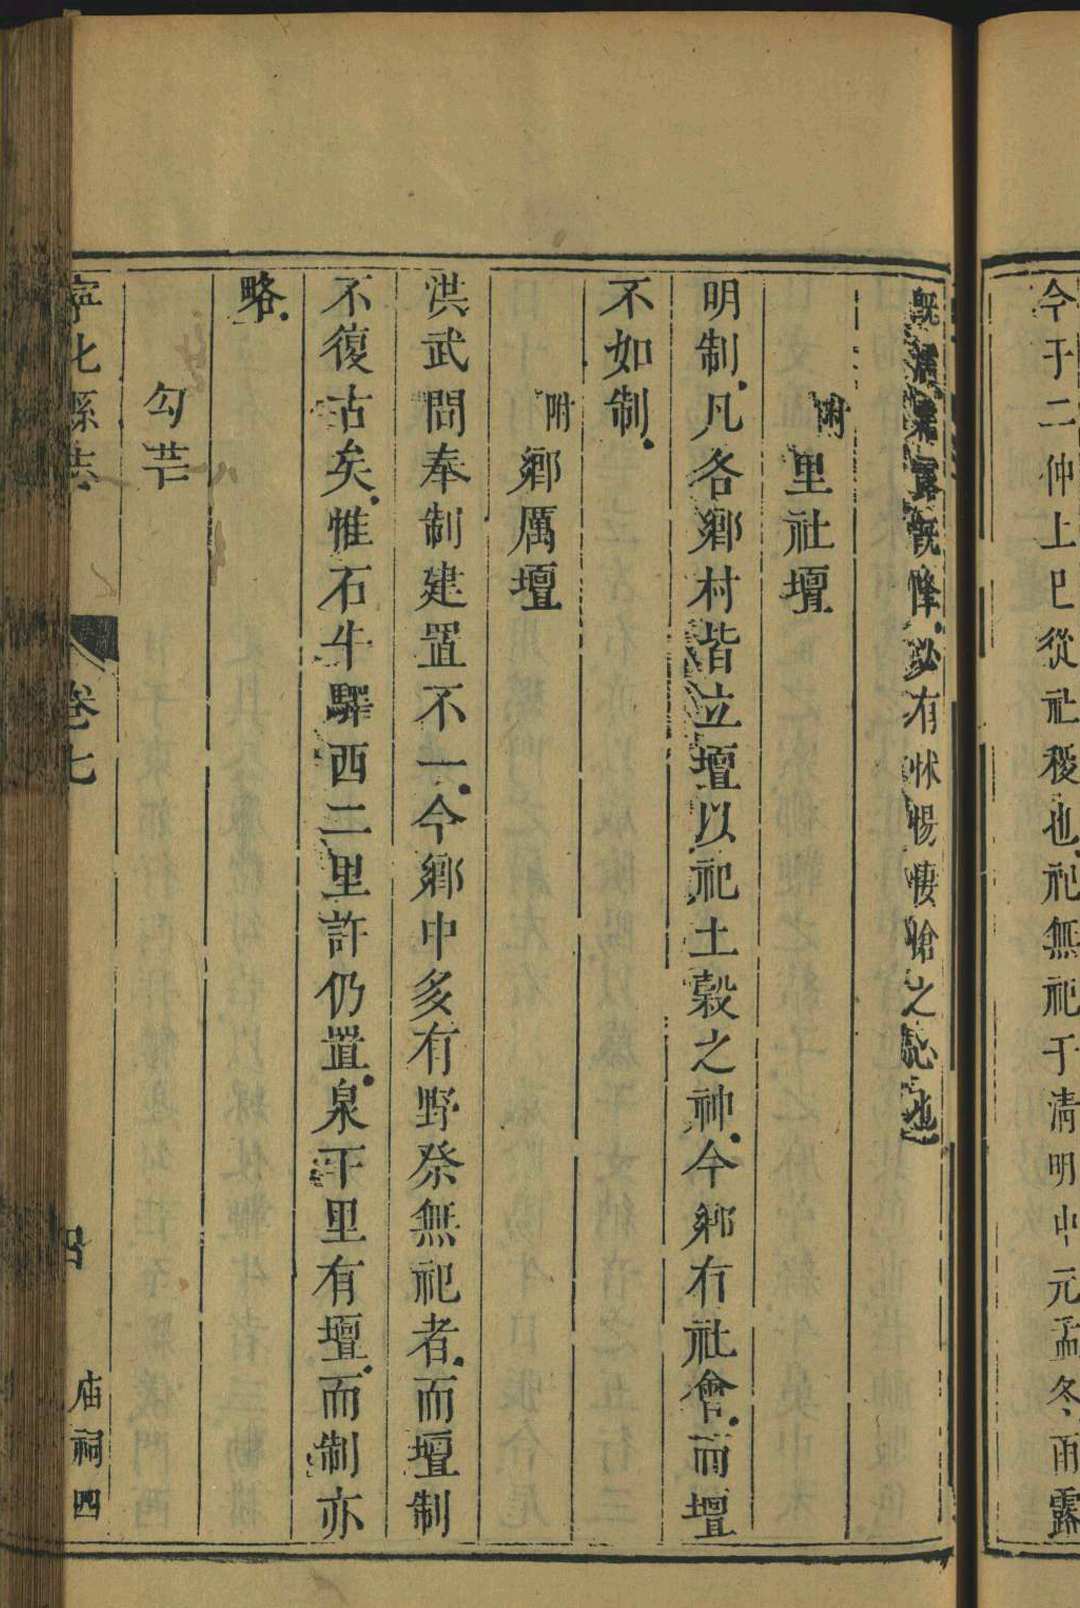 今于二仲上巳從社稷也祀無祀于清明中元孟冬雨露
既濡霜露既降必有怵惕悽愴之心也
附里社壇
明制凡各鄉村皆立壇以祀土穀之神今鄉有社會而壇
不如制
附鄉厲壇
洪武間奉制建置不一今鄉中多有野祭無祀者而壇制
不復古矣惟石牛驛西二里許仍置泉下里有壇而制亦
略
勾芒
寧化縣志 卷七 廟祠四